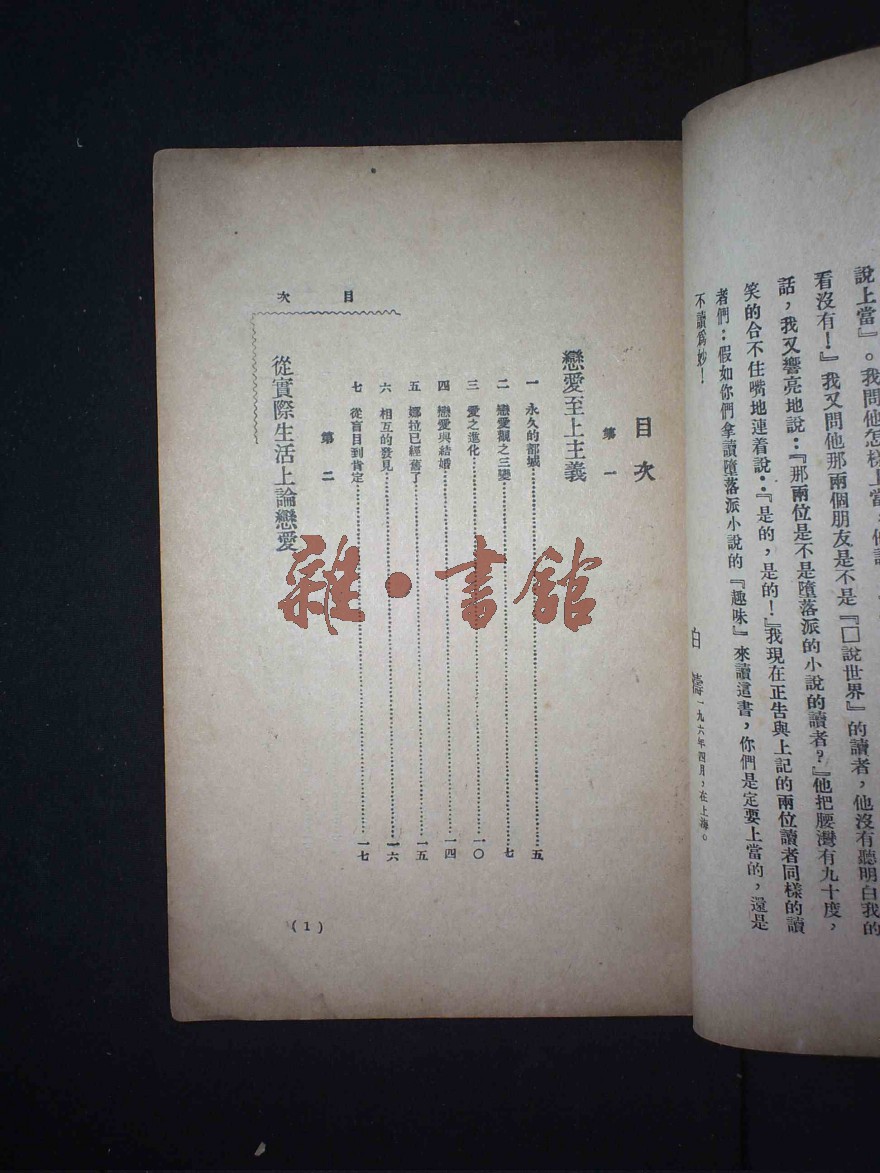 說上當』。我問他怎樣上當。他說
看沒有！』我又問他那兩個朋友是不是『□說世界』的讀者，他沒有聽明白我的
話，我又響亮地說：『那兩位是不是墮落派的小說的讀者？』他把腰灣有九十度，
笑的合不住嘴地連着說：『是的，是的！』我現在正告與上記的兩位讀者同樣的讀
者們：假如你們拿讀墮落派小說的『趣味』來讀這書，你們是定要上當的，還是
不讀爲妙！
一九六年四月，在上海。
目次
第一
戀愛至上主義
一 永久的都城 五
二 戀愛觀之三變 七
三 愛之進化 一〇
四 戀愛與結婚 一四
五 娜拉已經舊了 一五
六 相互的發見 一六
七 從盲目到肯定 一七
第二
從實際生活上論戀愛
目次
(1)
雜·書館